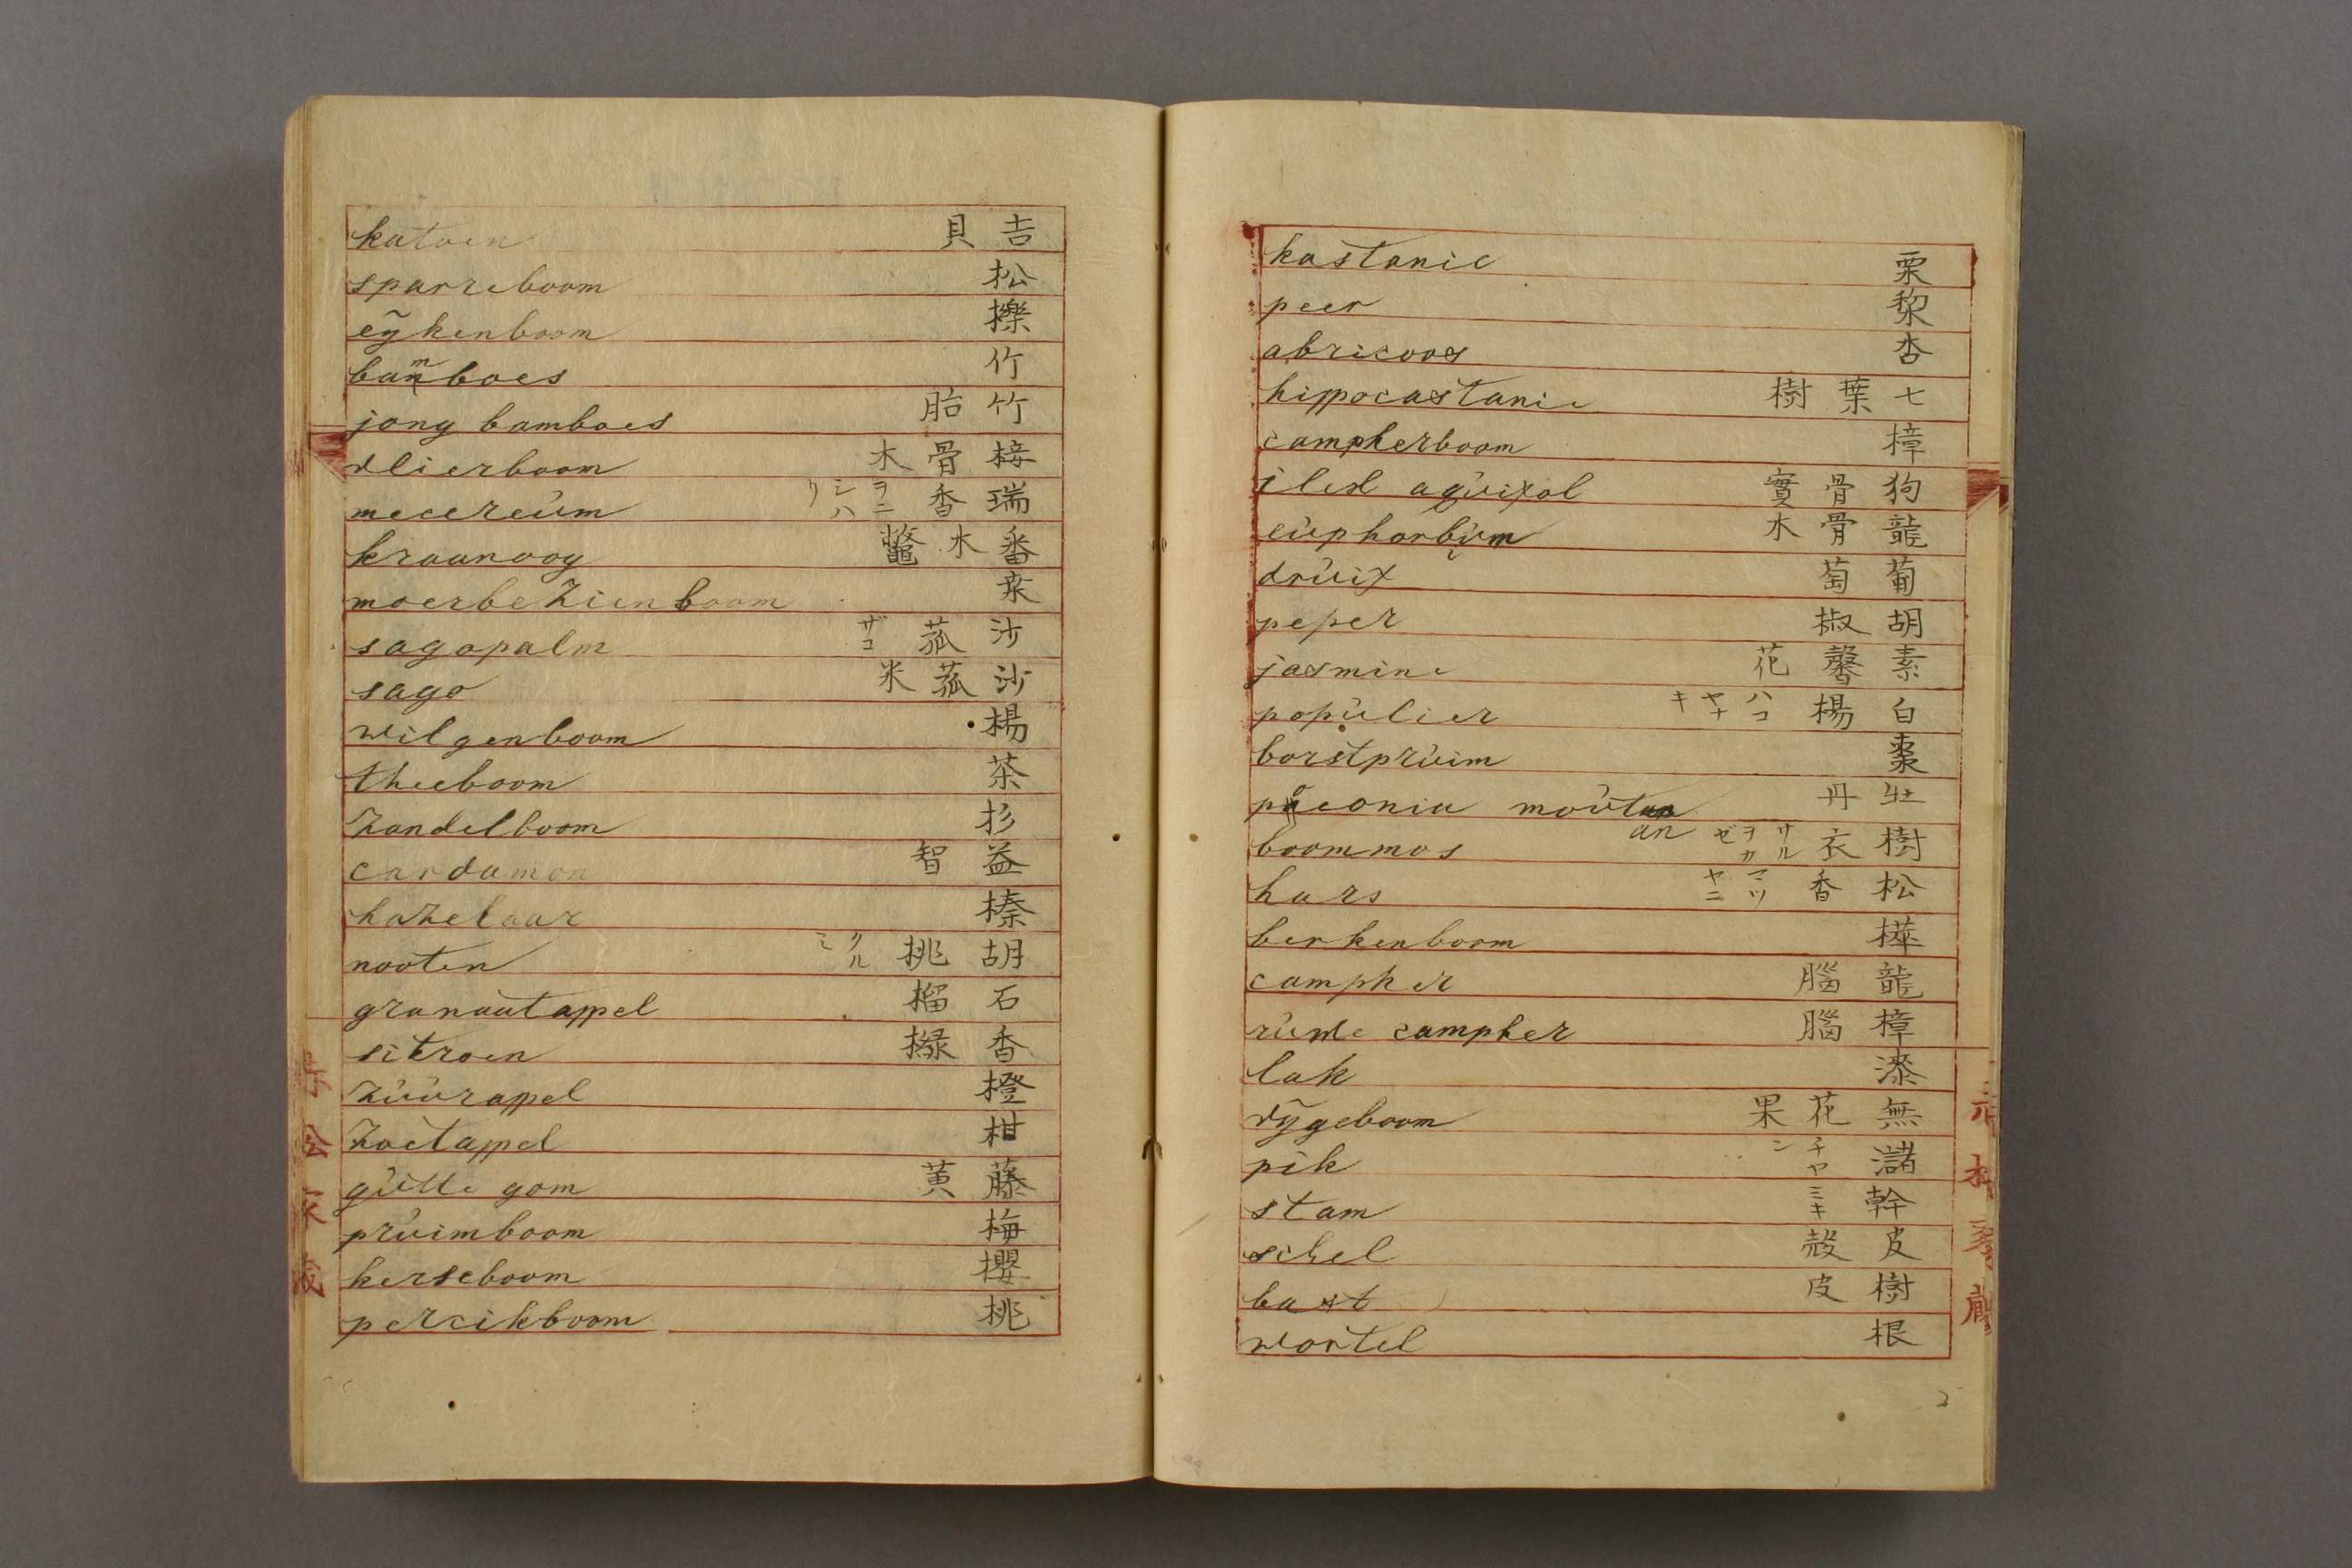 katoen 吉貝
sparreboom 松
eÿkenboom 櫟
bamboes 竹
jong bamboes 竹胎
vlierboom 椄骨木
mecereùm 瑞香 ヲニシハリ
kraanoog 番木鼈
moerbezienboom 桒
sagopalm 沙菰 ザコ
sago 沙菰米
wilgenboom 楊
theeboom 茶
zandelboom 杉
cardamon 益智
hazelaar 榛
nooten 胡桃 クルミ
granaatappel 石榴
sitroen 香櫞
zùùrappel 橙
zoetappel 柑
gùtte gom 藤黄
prùimboom 梅
kerseboom 櫻
percikboom 桃
kastanie 栗
peer 梨
abricoos 杏
hippocastanie 七葉樹
campherboom 樟
ilex aqùifol 狗骨實
eùphorbiùm 龍骨木
drùif 葡萄
peper 胡椒
jasmine 素馨花
popùlier 白楊 ハコヤナキ
borstprùim 棗
paeonia moùtan 牡丹
an
boommos 樹衣 サルヲガゼ
hars 松香 マツヤニ
berkenboom 樺
campher 龍腦
rùwe campher 樟腦
lak 漆
vÿgeboom 無花果
pik 瀦 チヤン
stam 幹 ミキ
schel 皮殻
bast 樹皮
wortel 根